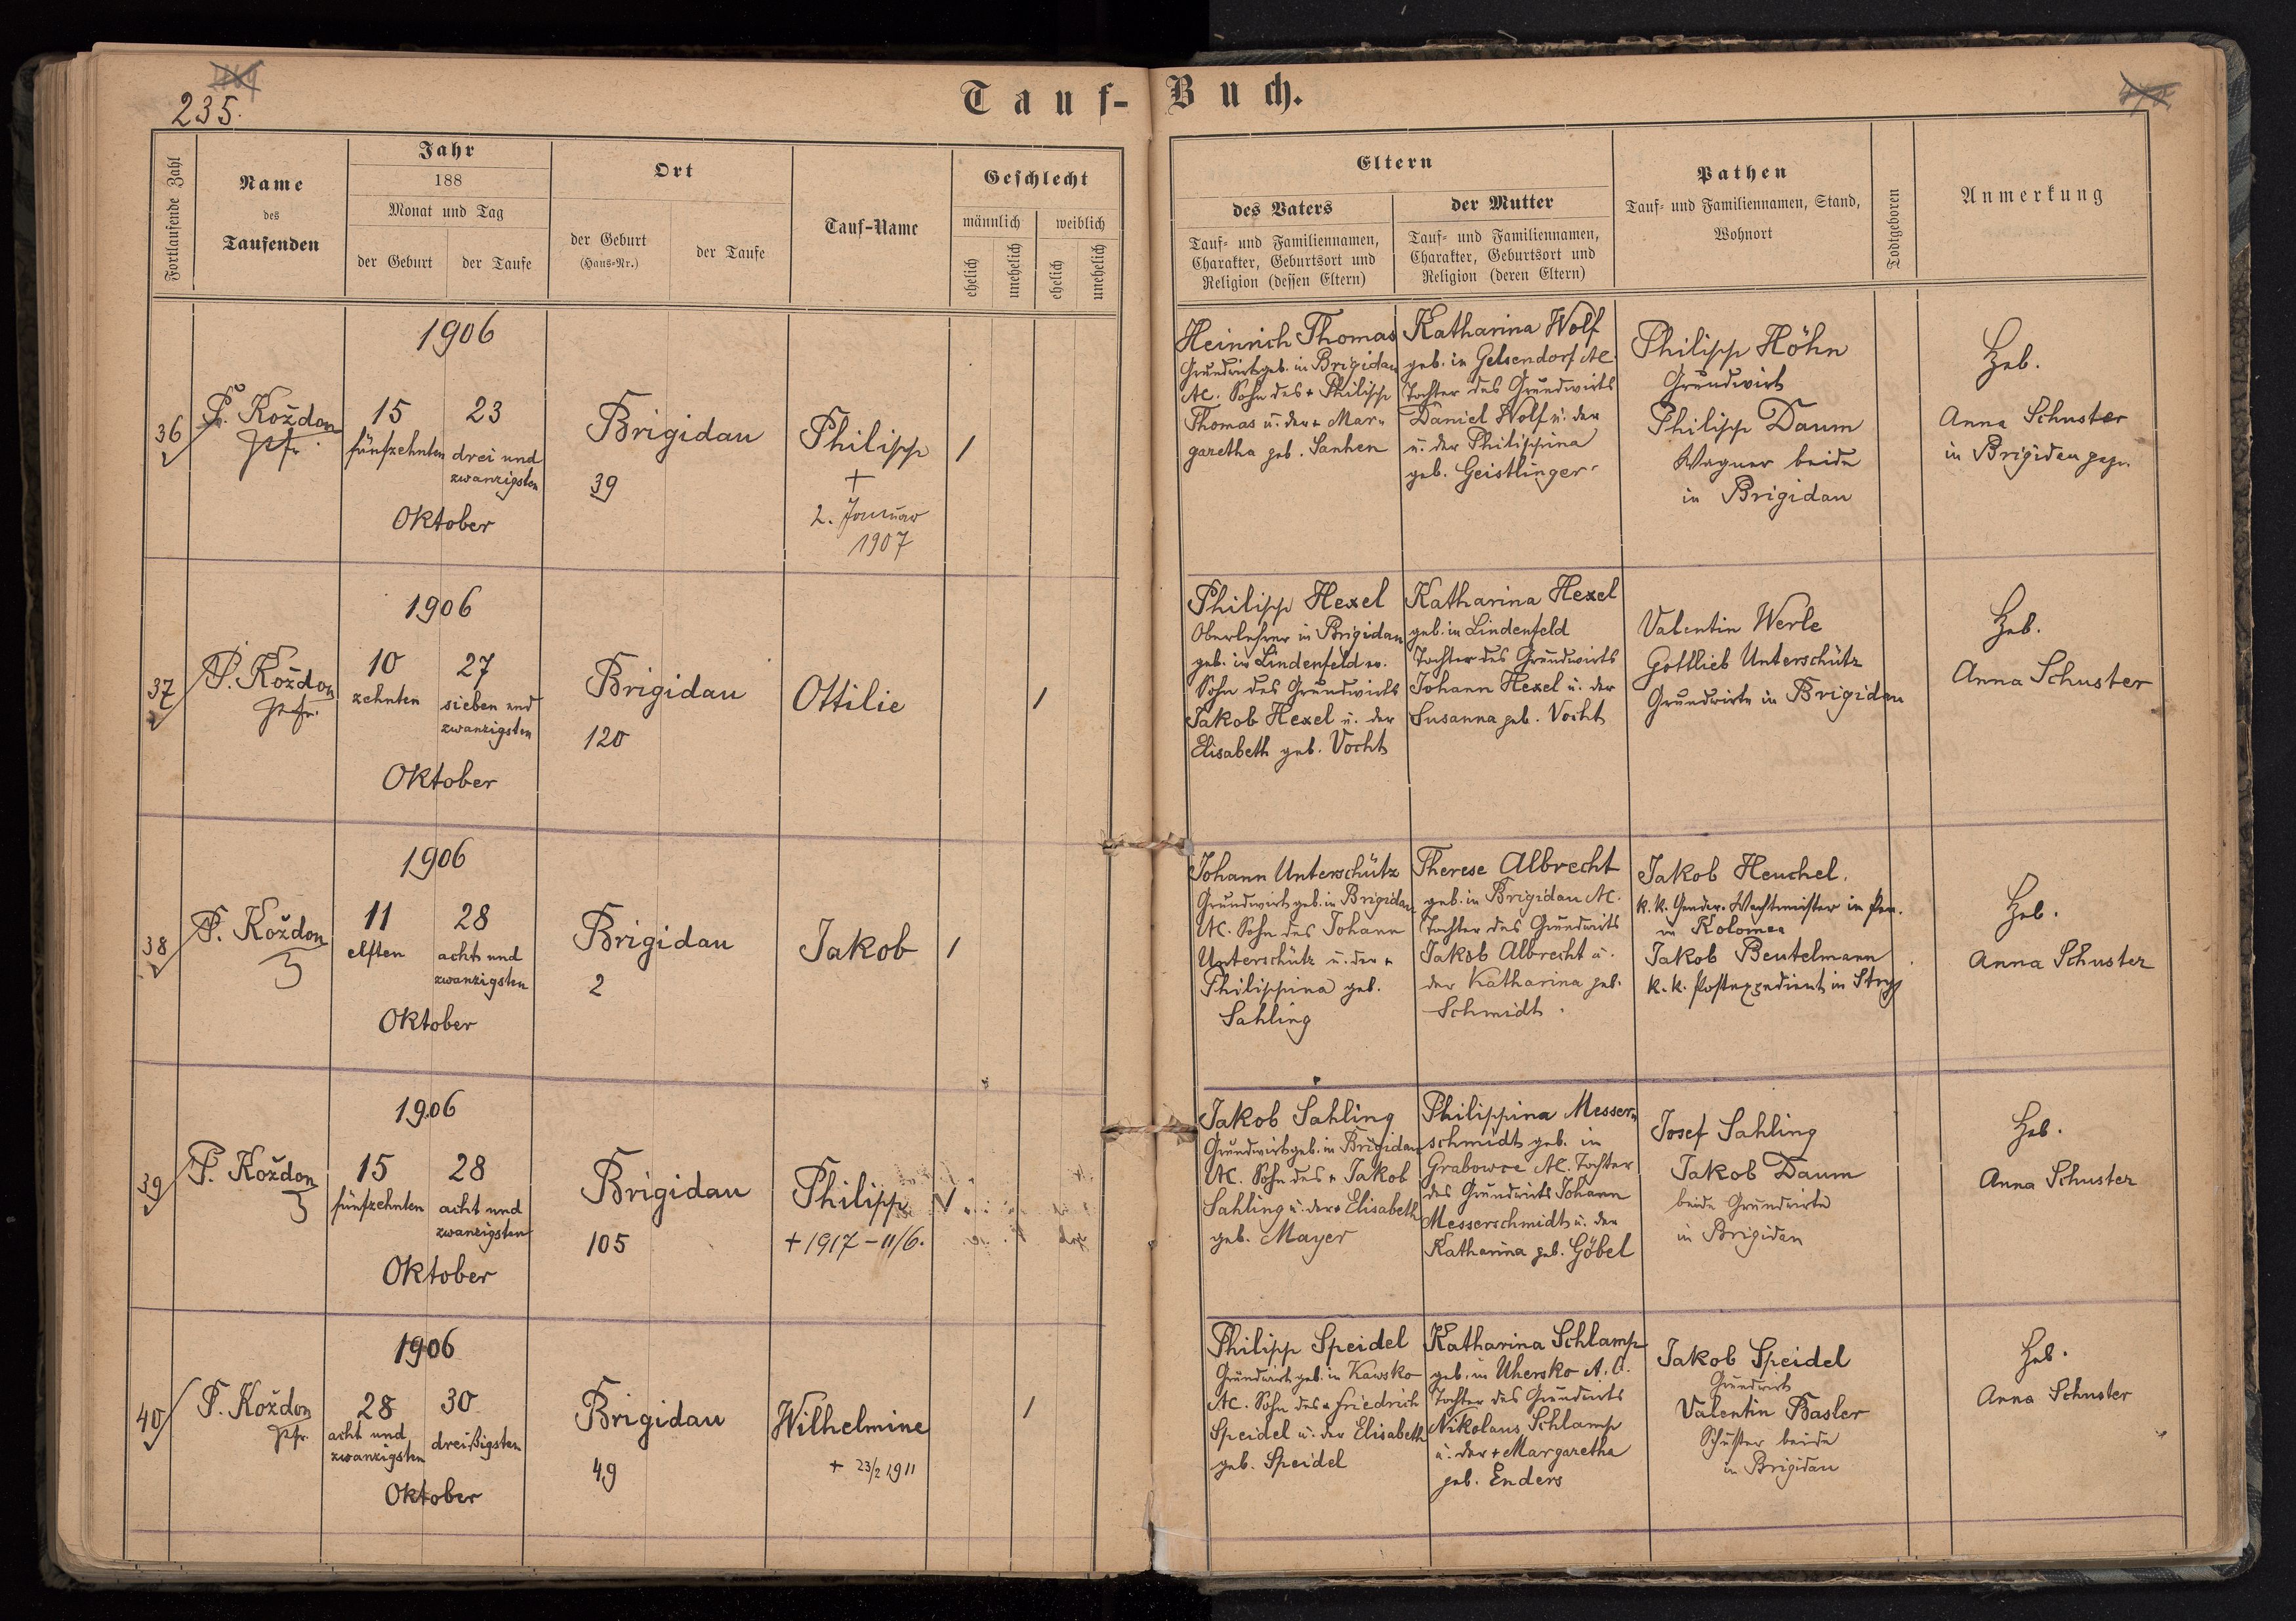 235.
Tauf-Buch.
Fortlaufende Zahl
Name
des
Taufenden
Jahr
188
Monat und Tag
der Geburt
der Taufe
Ort
der Geburt
(Haus-Nr.)
der Taufe
Tauf-Name
Geschlecht
männlich
weiblich
ehelich
unehelich
ehelich
unehelich
Eltern
des Vaters
Tauf- und Familiennamen,
Charakter, Geburtsort und
Religion (dessen Eltern)
der Mutter
Tauf- und Familiennamen,
Charakter, Geburtsort und
Religion (deren Eltern)
Pathen
Tauf- und Familiennamen, Stand,
Wohnort
Todtgeboren
Anmerkung
36
P. Koždon
Pfr.
1906
15
fünfzehnten
23
drei und
zwanzigsten
Oktober
Brigidau
39
Philipp
+
2. Januar
1907
1
Heinrich Thomas
Grundwirt geb. in Brigidau
AC. Sohn des + Philipp
Thomas u. der + Mar-
garetha geb. Sanhen
Katharina Wolf
geb. in Gelsendorf AC.
Tochter des Grundwirts
Daniel Wolf u. der
u. der Philippina
geb. Geistlinger
Philipp Höhn
Grundwirt
Philipp Daum
Wagner beide
in Brigidau
Heb.
Anna Schuster
in Brigidau gepr.
37
P. Koždon
Pfr.
1906
10
zehnten
27
sieben und
zwanzigsten
Oktober
Brigidau
120
Ottilie
1
Philipp Hexel
Oberlehrer in Brigidau
geb. in Lindenfeld ev.
Sohn des Grundwirts
Jakob Hexel u. der
Elisabeth geb. Vocht
Katharina Hexel
geb. in Lindenfeld
Tochter des Grundwirts
Johann Hexel u. der
Susanna geb. Vocht
Valentin Werle
Gottlieb Unterschütz
Grundwirte in Brigidau
Heb.
Anna Schuster
38
P. Koždon
1906
11
elften
28
acht und
zwanzigsten
Oktober
Brigidau
2
Jakob
1
Johann Unterschütz
Grundwirt geb. in Brigidau
AC. Sohn des Johann
Unterschütz u. der +
Philippina geb.
Sahling
Therese Albrecht
geb. in Brigidau AC.
Tochter des Grundwirts
Jakob Albrecht u.
der Katharina geb.
Schmidt.
Jakob Heuchel.
k.k. Gendar. Wachtmeister in Pen.
in Kolomea
Jakob Beutelmann
k.k. Postexpedient in Stryj
Heb.
Anna Schuster
39
P. Koždon
1906
15
fünfzehnten
28
acht und
zwanzigsten
Oktober
Brigidau
105
Philipp
+ 1917 - 11/6.
1
Jakob Sahling
Grundwirt geb. in Brigidau
AC. Sohn des + Jakob
Sahling u. der + Elisabeth
geb. Mayer
Philippina Messer-
schmidt geb. in
Grabowce AC. Tochter
des Grundwirts Johann
Messerschmidt u. der
Katharina geb. Göbel
Josef Sahling
Jakob Daum
beide Grundwirte
in Brigidau
Heb.
Anna Schuster
40
P. Koždon
Pfr.
1906
28
acht und
zwanzigsten
30
dreißigsten
Oktober
Brigidau
49
Wilhelmine
+ 23/2 1911
1
Philipp Speidel
Grundwirt geb. in Kawsko
AC. Sohn des + Friedrich
Speidel u. der Elisabeth
geb. Speidel
Katharina Schlamp
geb. in Uhersko A.C.
Tochter des Grundwirts
Nikolaus Schlamp
u. der + Margaretha
geb. Enders
Jakob Speidel
Grundwirt
Valentin Basler
Schuster beide
in Brigidau
Heb.
Anna Schuster